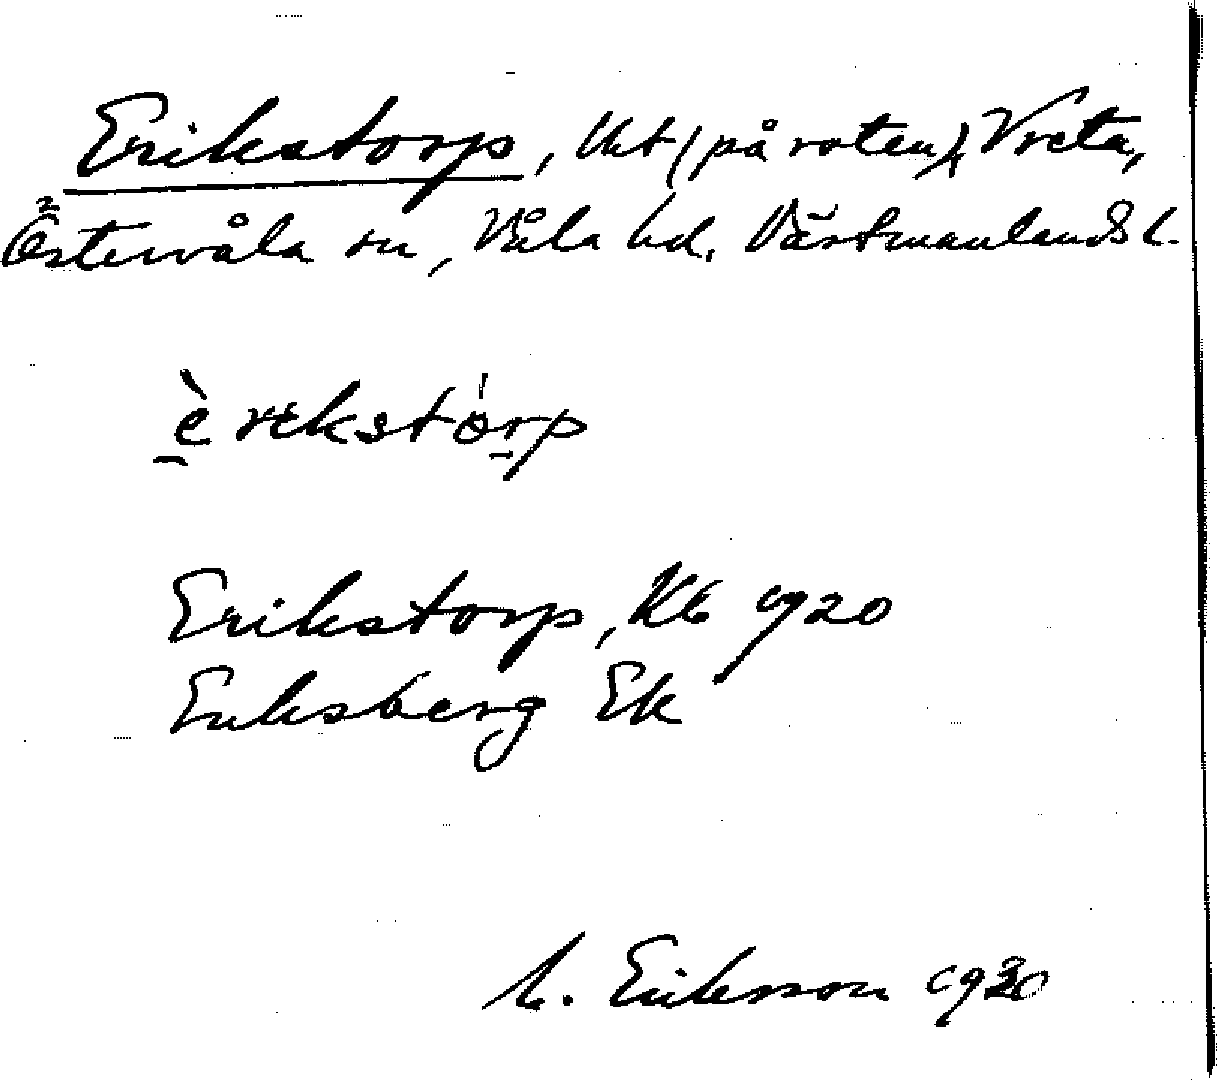 Erikstorp, Uut (på roten), Vreta,
Östervåla sn, Våla hd. Västmanlands l.
èrekstórp
Erikstorp, Kb 1920
Eriksberg Ek
M. Eriksson 1930